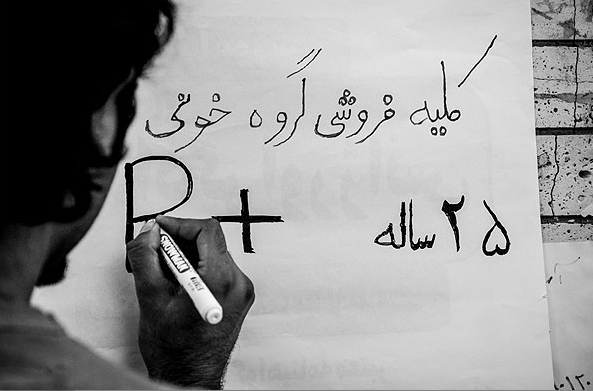 کلیه فروشی گروه خونی
P+
۲۵ ساله
SNOWMAN